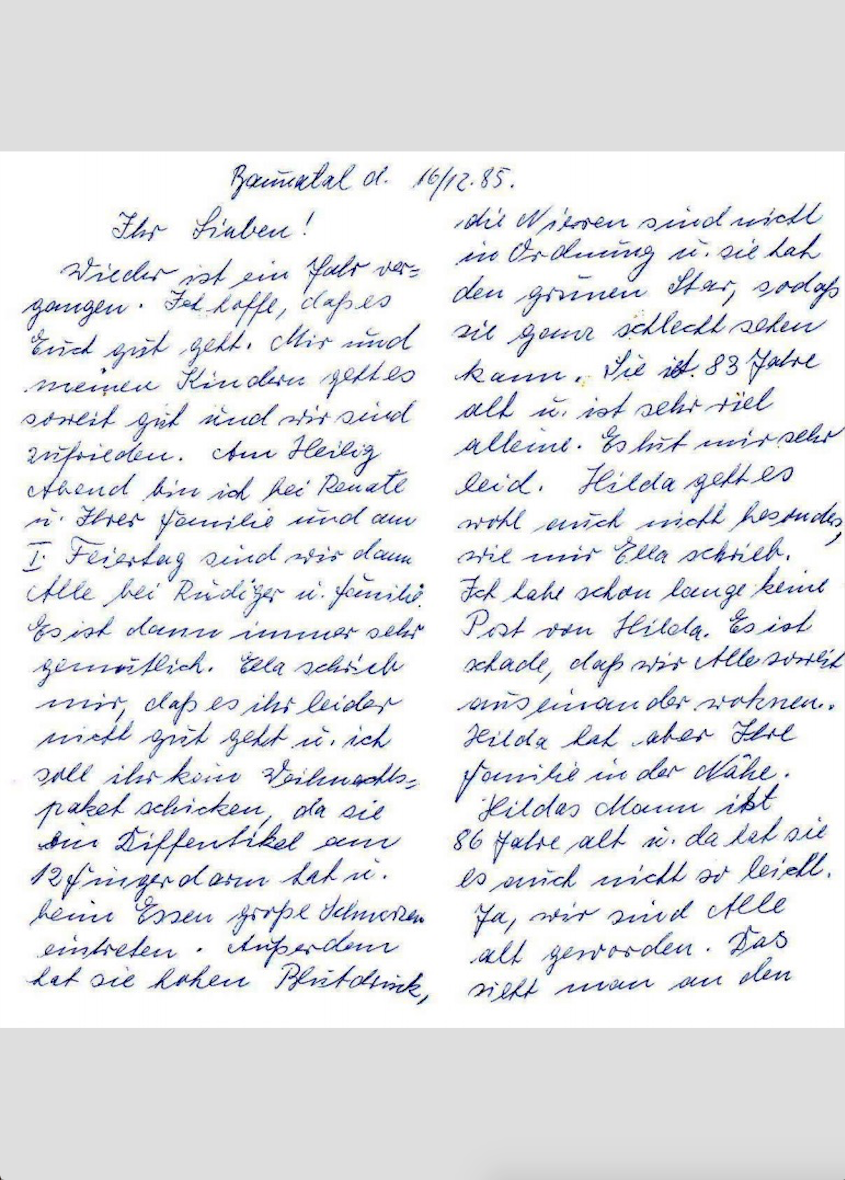 Baunatal d. 16/12.85.
Ihr Lieben!
Wieder ist ein Jahr ver=
gangen. Ich hoffe, daß es
Euch gut geht. Mir und
meinen Kindern geht es
soweit gut und wir sind
zufrieden. Am Heilig
Abend bin ich bei Renate
u. Ihrer Familie und am
I. Feiertag sind wir dann
Alle bei Rüdiger u. Familie.
Es ist dann immer sehr
gemütlich. Ella schrieb
mir, daß es ihr leider
nicht gut geht u. ich
soll ihr kein Weihnachts=
paket schicken, da sie
ein Diffentikel am
12 fingerdarm hat u.
beim Essen große Schmerzen
eintreten. Außerdem
hat sie hohen Blutdruck,
die Nieren sind nicht
in Ordnung u. sie hat
den grünen Star, sodaß
sie ganz schlecht sehen
kann. Sie ist 83 Jahre
alt u. ist sehr viel
alleine. Es tut mir sehr
leid. Hilda geht es
wohl auch nicht besonders,
wie mir Ella schrieb.
Ich habe schon lange keine
Post von Hilda. Es ist
schade, daß wir Alle soweit
auseinander wohnen.
Hilda hat aber Ihre
Familie in der Nähe.
Hildas Mann ist
86 Jahre alt u. da hat sie
es auch nicht so leicht.
Ja, wir sind Alle
alt geworden. Das
sieht man an den